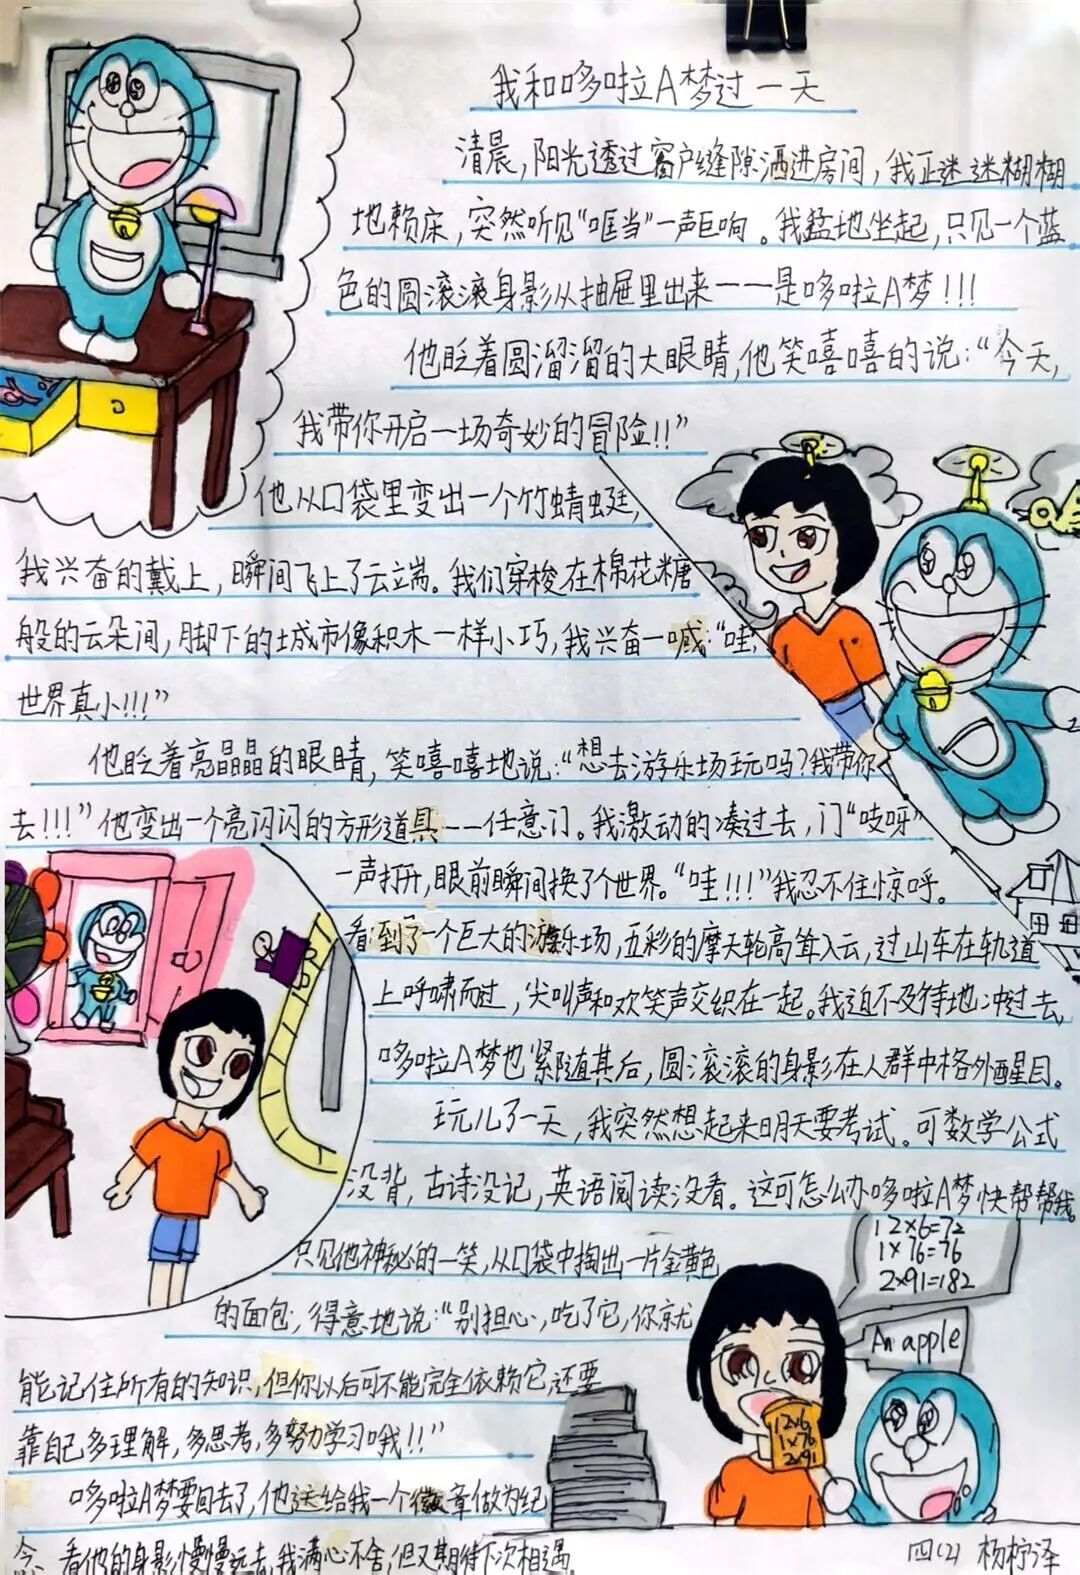 我和哆啦A梦过一天
清晨，阳光透过窗户缝隙洒进房间，我正迷迷糊糊
地赖床，突然听见“哐当”一声巨响。我猛地坐起，只见一个蓝
色的圆滚滚身影从抽屉里出来——是哆啦A梦!!!
他眨着圆溜溜的大眼睛，他笑嘻嘻的说：“今天，
我带你开启一场奇妙的冒险!!”
他从口袋里变出一个竹蜻蜓，
我兴奋的戴上，瞬间飞上了云端。我们穿梭在棉花糖
般的云朵间，脚下的城市像积木一样小巧，我兴奋一喊：“哇，
世界真小!!!”
他眨着亮晶晶的眼睛，笑嘻嘻地说：“想去游乐场玩吗？我带你
去!!!”他变出一个亮闪闪的方形道具——任意门。我激动的凑过去，门“吱呀”
一声打开，眼前瞬间换了个世界。“哇!!!”我忍不住惊呼。
看到了一个巨大的游乐场，五彩的摩天轮高耸入云，过山车在轨道
上呼啸而过，尖叫声和欢笑声交织在一起。我迫不及待地冲过去，
哆啦A梦也紧随其后，圆滚滚的身影在人群中格外醒目。
玩儿了一天，我突然想起来明天要考试。可数学公式
没背，古诗没记，英语阅读没看。这可怎么办哆啦A梦快帮帮我。
只见他神秘的一笑，从口袋中掏出一片金黄色
的面包，得意地说：“别担心，吃了它，你就
能记住所有的知识，但你以后可不能完全依赖它，还要
靠自己多理解，多思考，多努力学习哦!!”
哆啦A梦要回去了，他送给我一个徽章做为纪
念、看他的身影慢慢远去，我满心不舍，但又期待下次相遇。
12×6=72
1×76=76
2×91=182
An apple
12×6
1×76
2×91
四(2) 杨柠泽